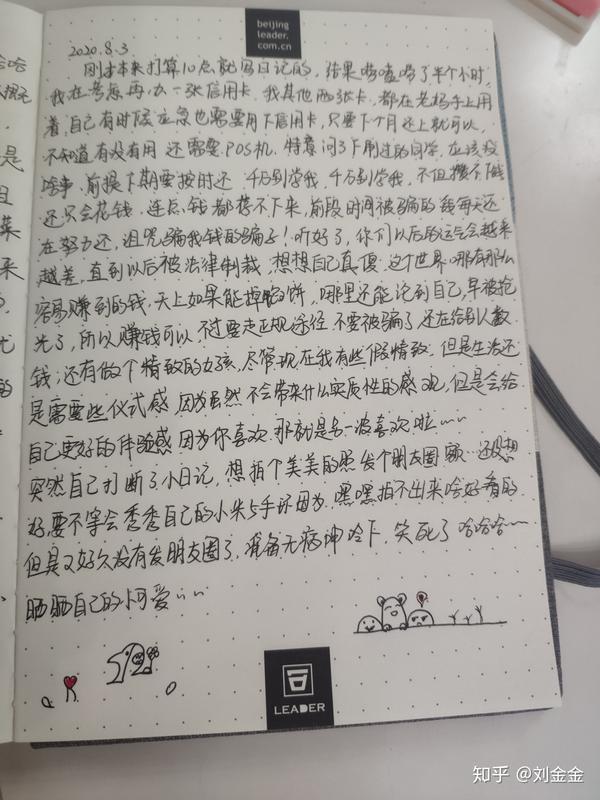 beijing
leader.
com.cn
2020.8.3
刚才本来打算10点就写日记的,结果唠嗑唠了半个小时,
我在考虑再办一张信用卡,我其他两张卡,都在老妈手上用
着,自己有时候应急也需要用下信用卡,只要下个月还上就可以,
不知道有没有用 还需要POS机.特意问了下刷过的同学,应该没
啥事,前提下期要按时还.千万别学我,千万别学我,不但攒不下钱
还只会花钱.连点钱都存不下来,前段时间被骗的钱每天还
在努力还,诅咒骗我钱的骗子!听好了,你们以后的运气会越来
越差,直到以后被法律制裁,想想自己真傻.这个世界哪有那么
容易赚到的钱.天上如果能掉馅饼,哪里还能论到自己,早被抢
光了,所以赚钱可以,不过要走正规途径,不要被骗了,还在给别人数
钱;还有做个精致的女孩,尽管现在我有些假精致,但是生活还
是需要些仪式感 因为虽然不会带来什么实质性的感观,但是会给
自己更好的体验感 因为你喜欢 那就是另一波喜欢啦~~
突然自己打断了小日记,想拍个美美的照 发个朋友圈 额…还没想
好,要不等会秀秀自己的小米5手环因为,嘿嘿拍不出来啥好看的
但是又好久没有发朋友圈了,准备无病呻吟下,笑死了 哈哈哈~
晒晒自己的小可爱~~
LEADER
知乎 @刘金金